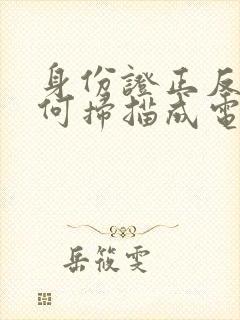 身份證正反
何掃描成電
岳筱雯